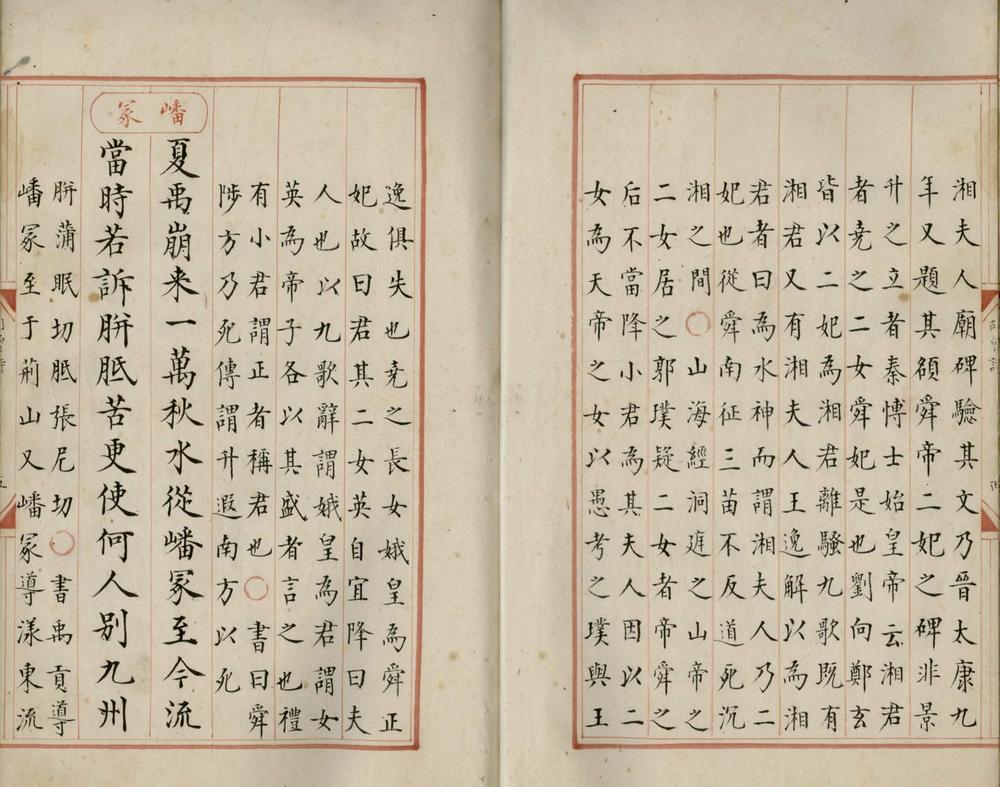 湘夫人廟碑驗其文乃晉太康九
年又題其額舜帝二妃之碑非景
升之立者秦博士始皇帝云湘君
者尭之二女舜妃是也劉向鄭玄
皆以二妃為湘君離騷九歌既有
湘君又有湘夫人王逸解以為湘
君者曰為水神而謂湘夫人乃二
妃也從舜南征三苗不反道死沉
湘之間○山海經洞庭之山帝之
二女居之郭璞疑二女者帝舜之
后不當降小君為其夫人因以二
女為天帝之女以愚考之璞與王
逸俱失也尭之長女娥皇為舜正
妃故曰君其二女英自宜降曰夫
人也以九歌辭謂娥皇為君謂女
英為帝子各以其盛者言之也禮
有小君謂正者稱君也○書曰舜
陟方乃死傳謂升遐南方以死
嶓冢
夏禹崩来一萬秋水從嶓冢至今流
當時若訴胼胝苦更使何人别九州
胼蒲眠切胝張尼切○書禹貢導
嶓冢至于荊山又嶓冢導漾東流